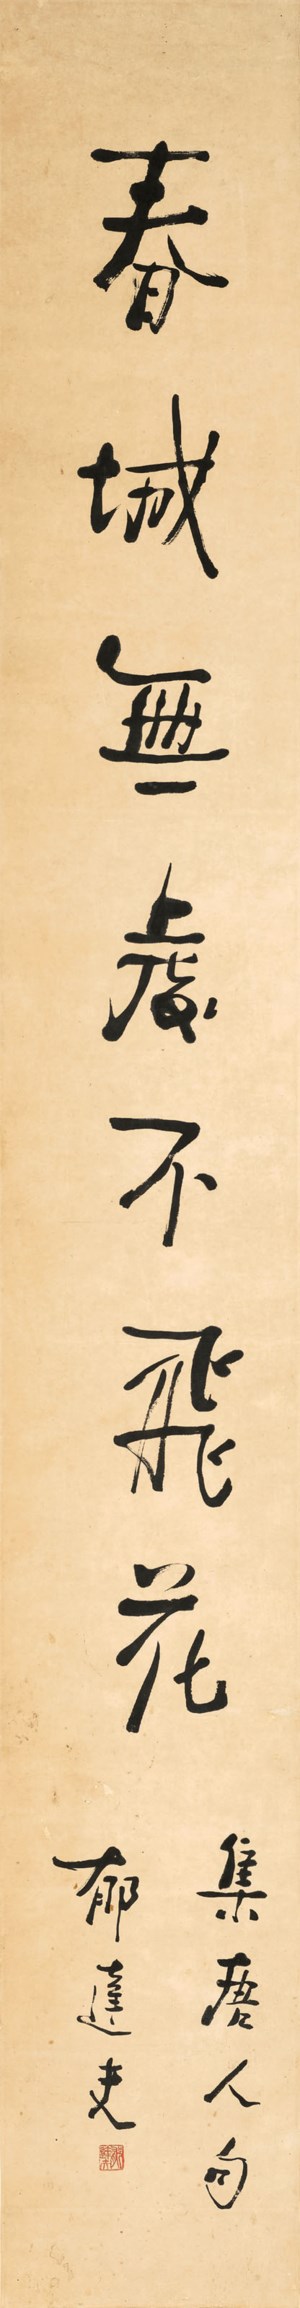 春城無處不飛花
集唐人句
郁達夫